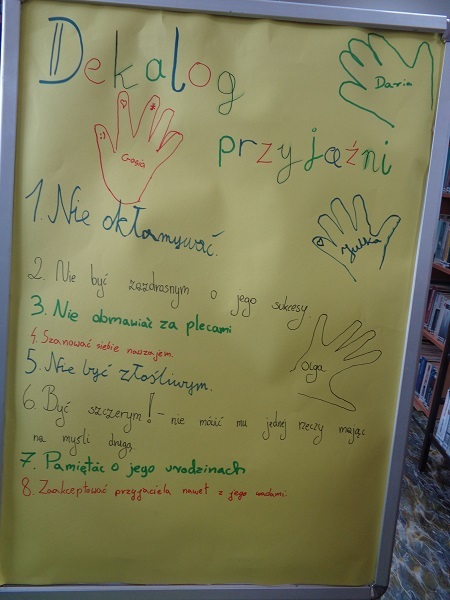 Dekalog
Daria
Gosia
przyjaźni
1. Nie okłamywać.
Julka
2. Nie być zazdrosnym o jego sukcesy.
3. Nie obmawiać za plecami
4. Szanować siebie nawzajem.
5. Nie być złośliwym.
Olga
6. Być szczerym! - nie mówić mu jednej rzeczy mając
na myśli drugą.
7. Pamiętać o jego urodzinach
8. Zaakceptować przyjaciela nawet z jego wadami.